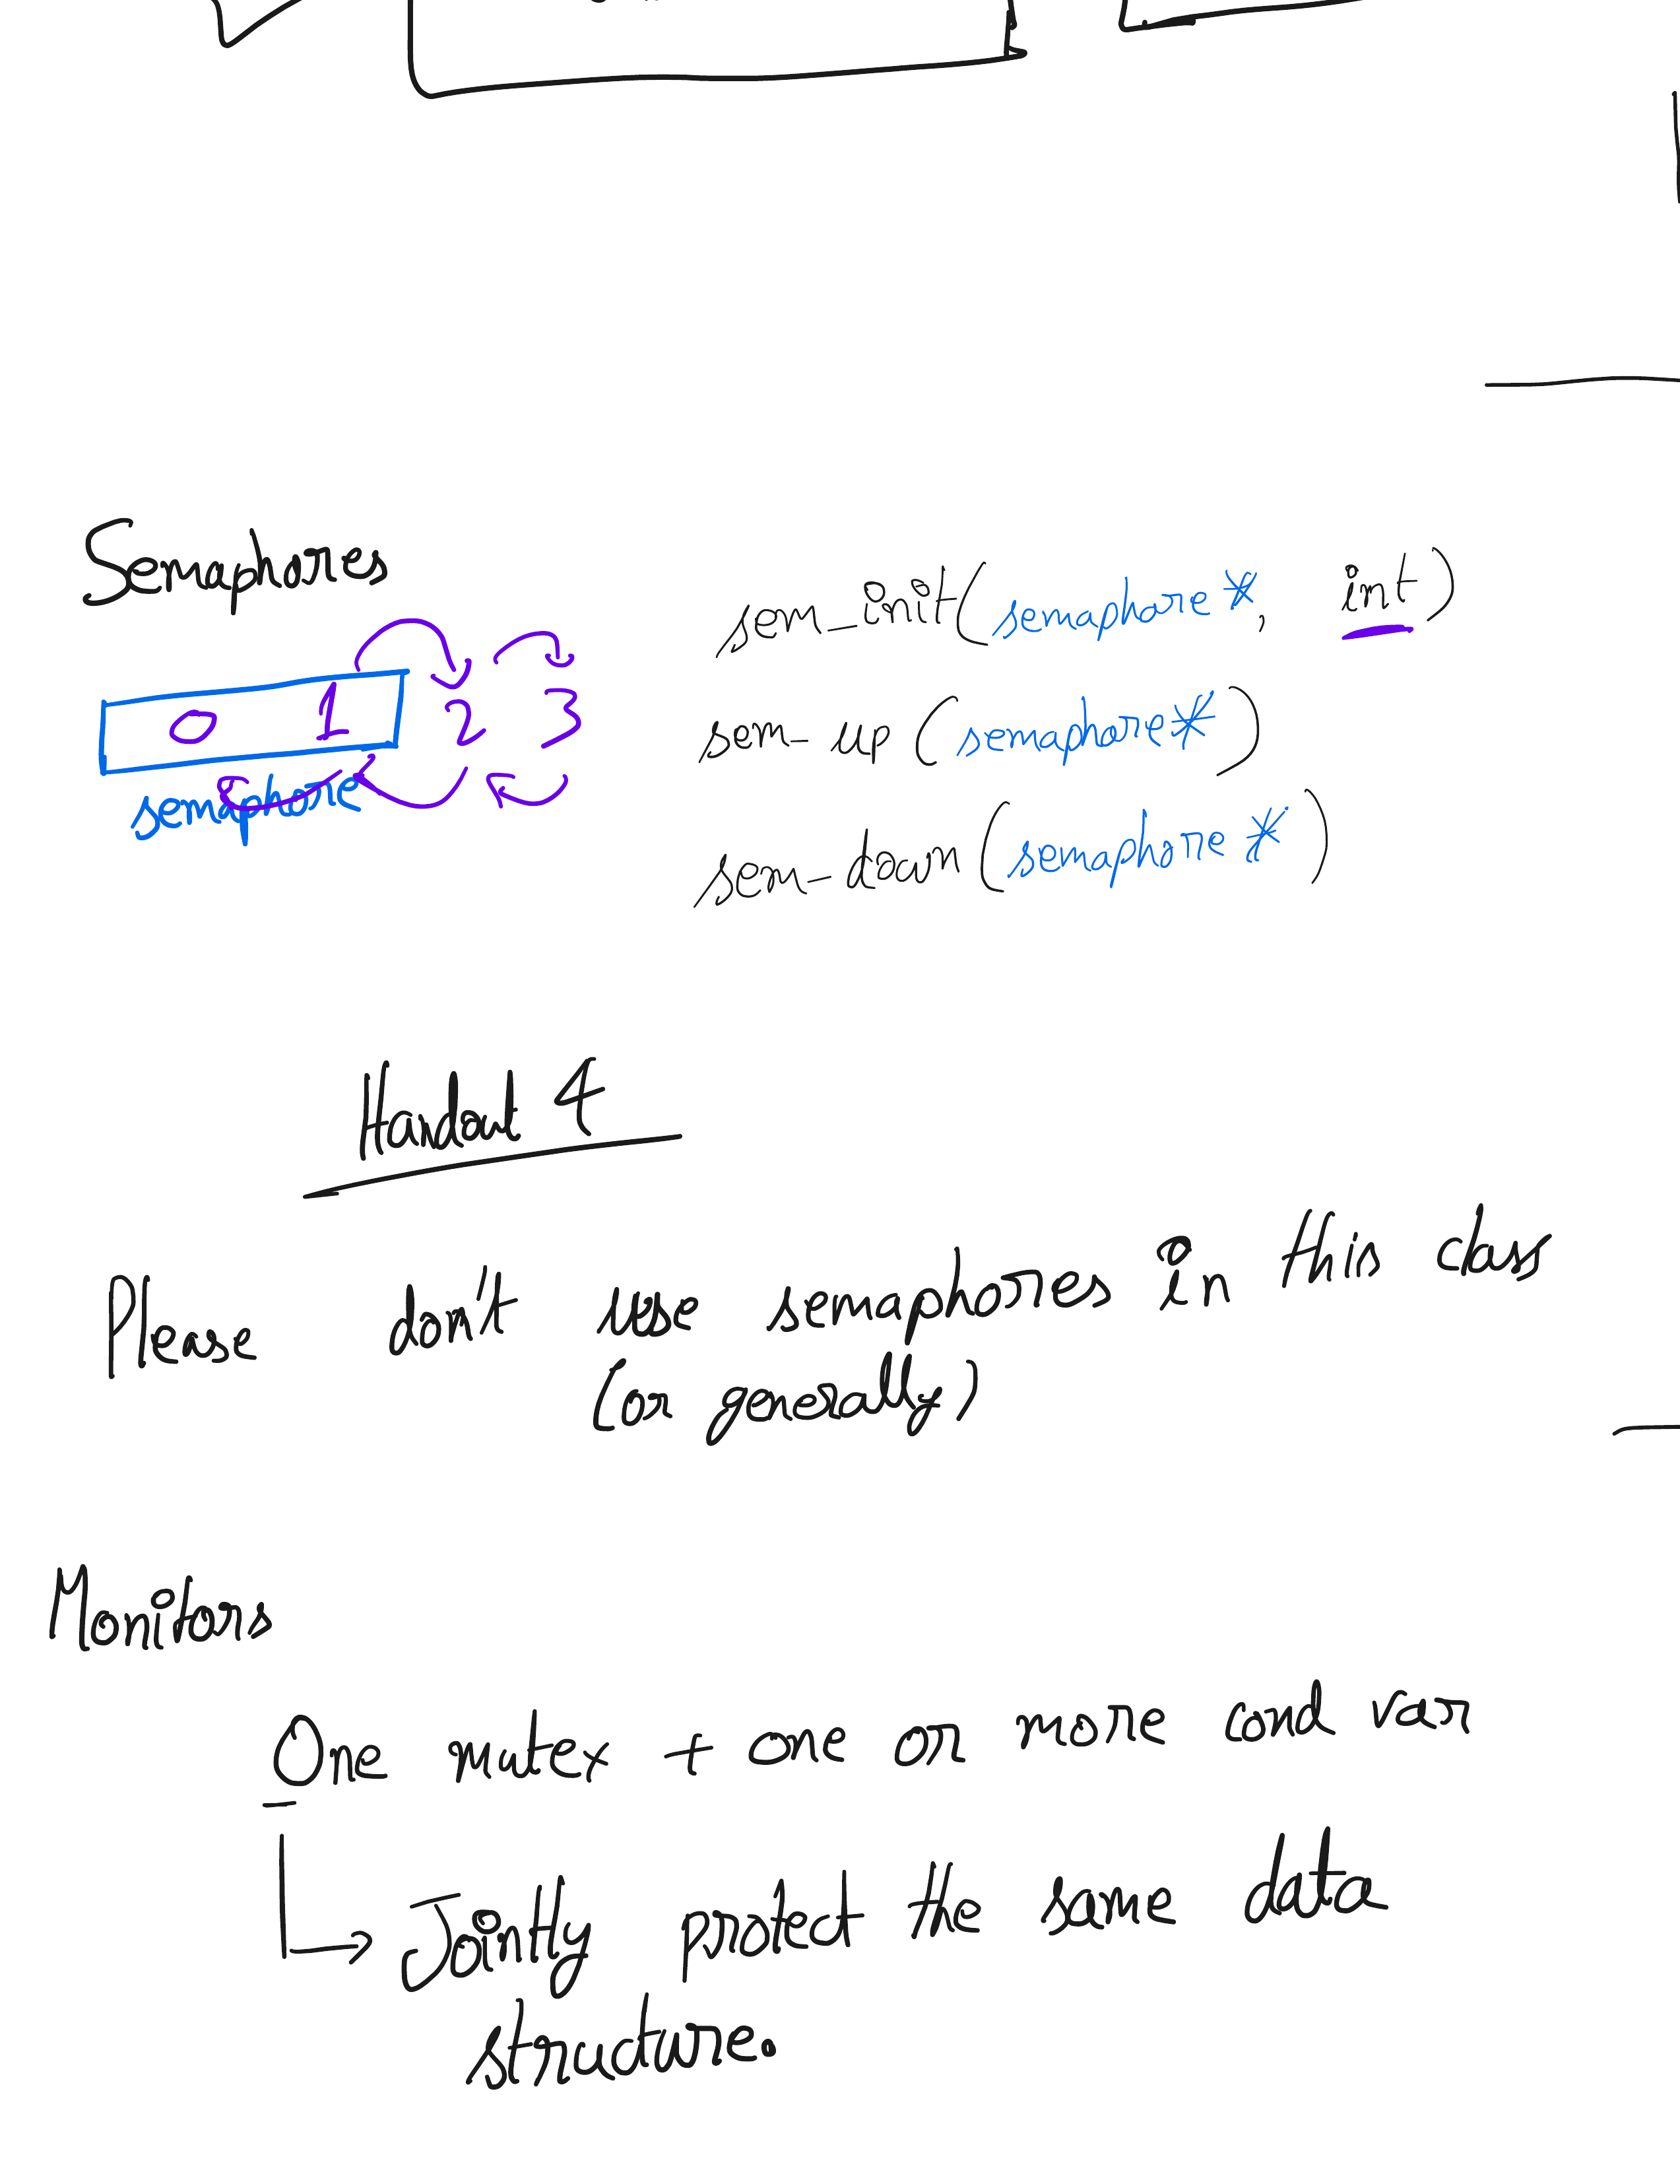 Semaphores
sem_init(semaphore*, int)
0 1 2 3
sem_up(semaphore*)
semaphore
sem_down(semaphore*)
Handout 4
Please don't use semaphores in this class
(or generally)
Monitors
One mutex + one or more cond var
Jointly protect the same data
structure.